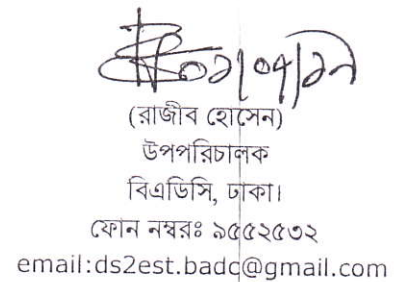 (রাজীব হোসেন)
উপপরিচালক
বিএডিসি, ঢাকা।
ফোন নম্বরঃ ৯৫৫২৫৩২
email:ds2est.badc@gmail.com